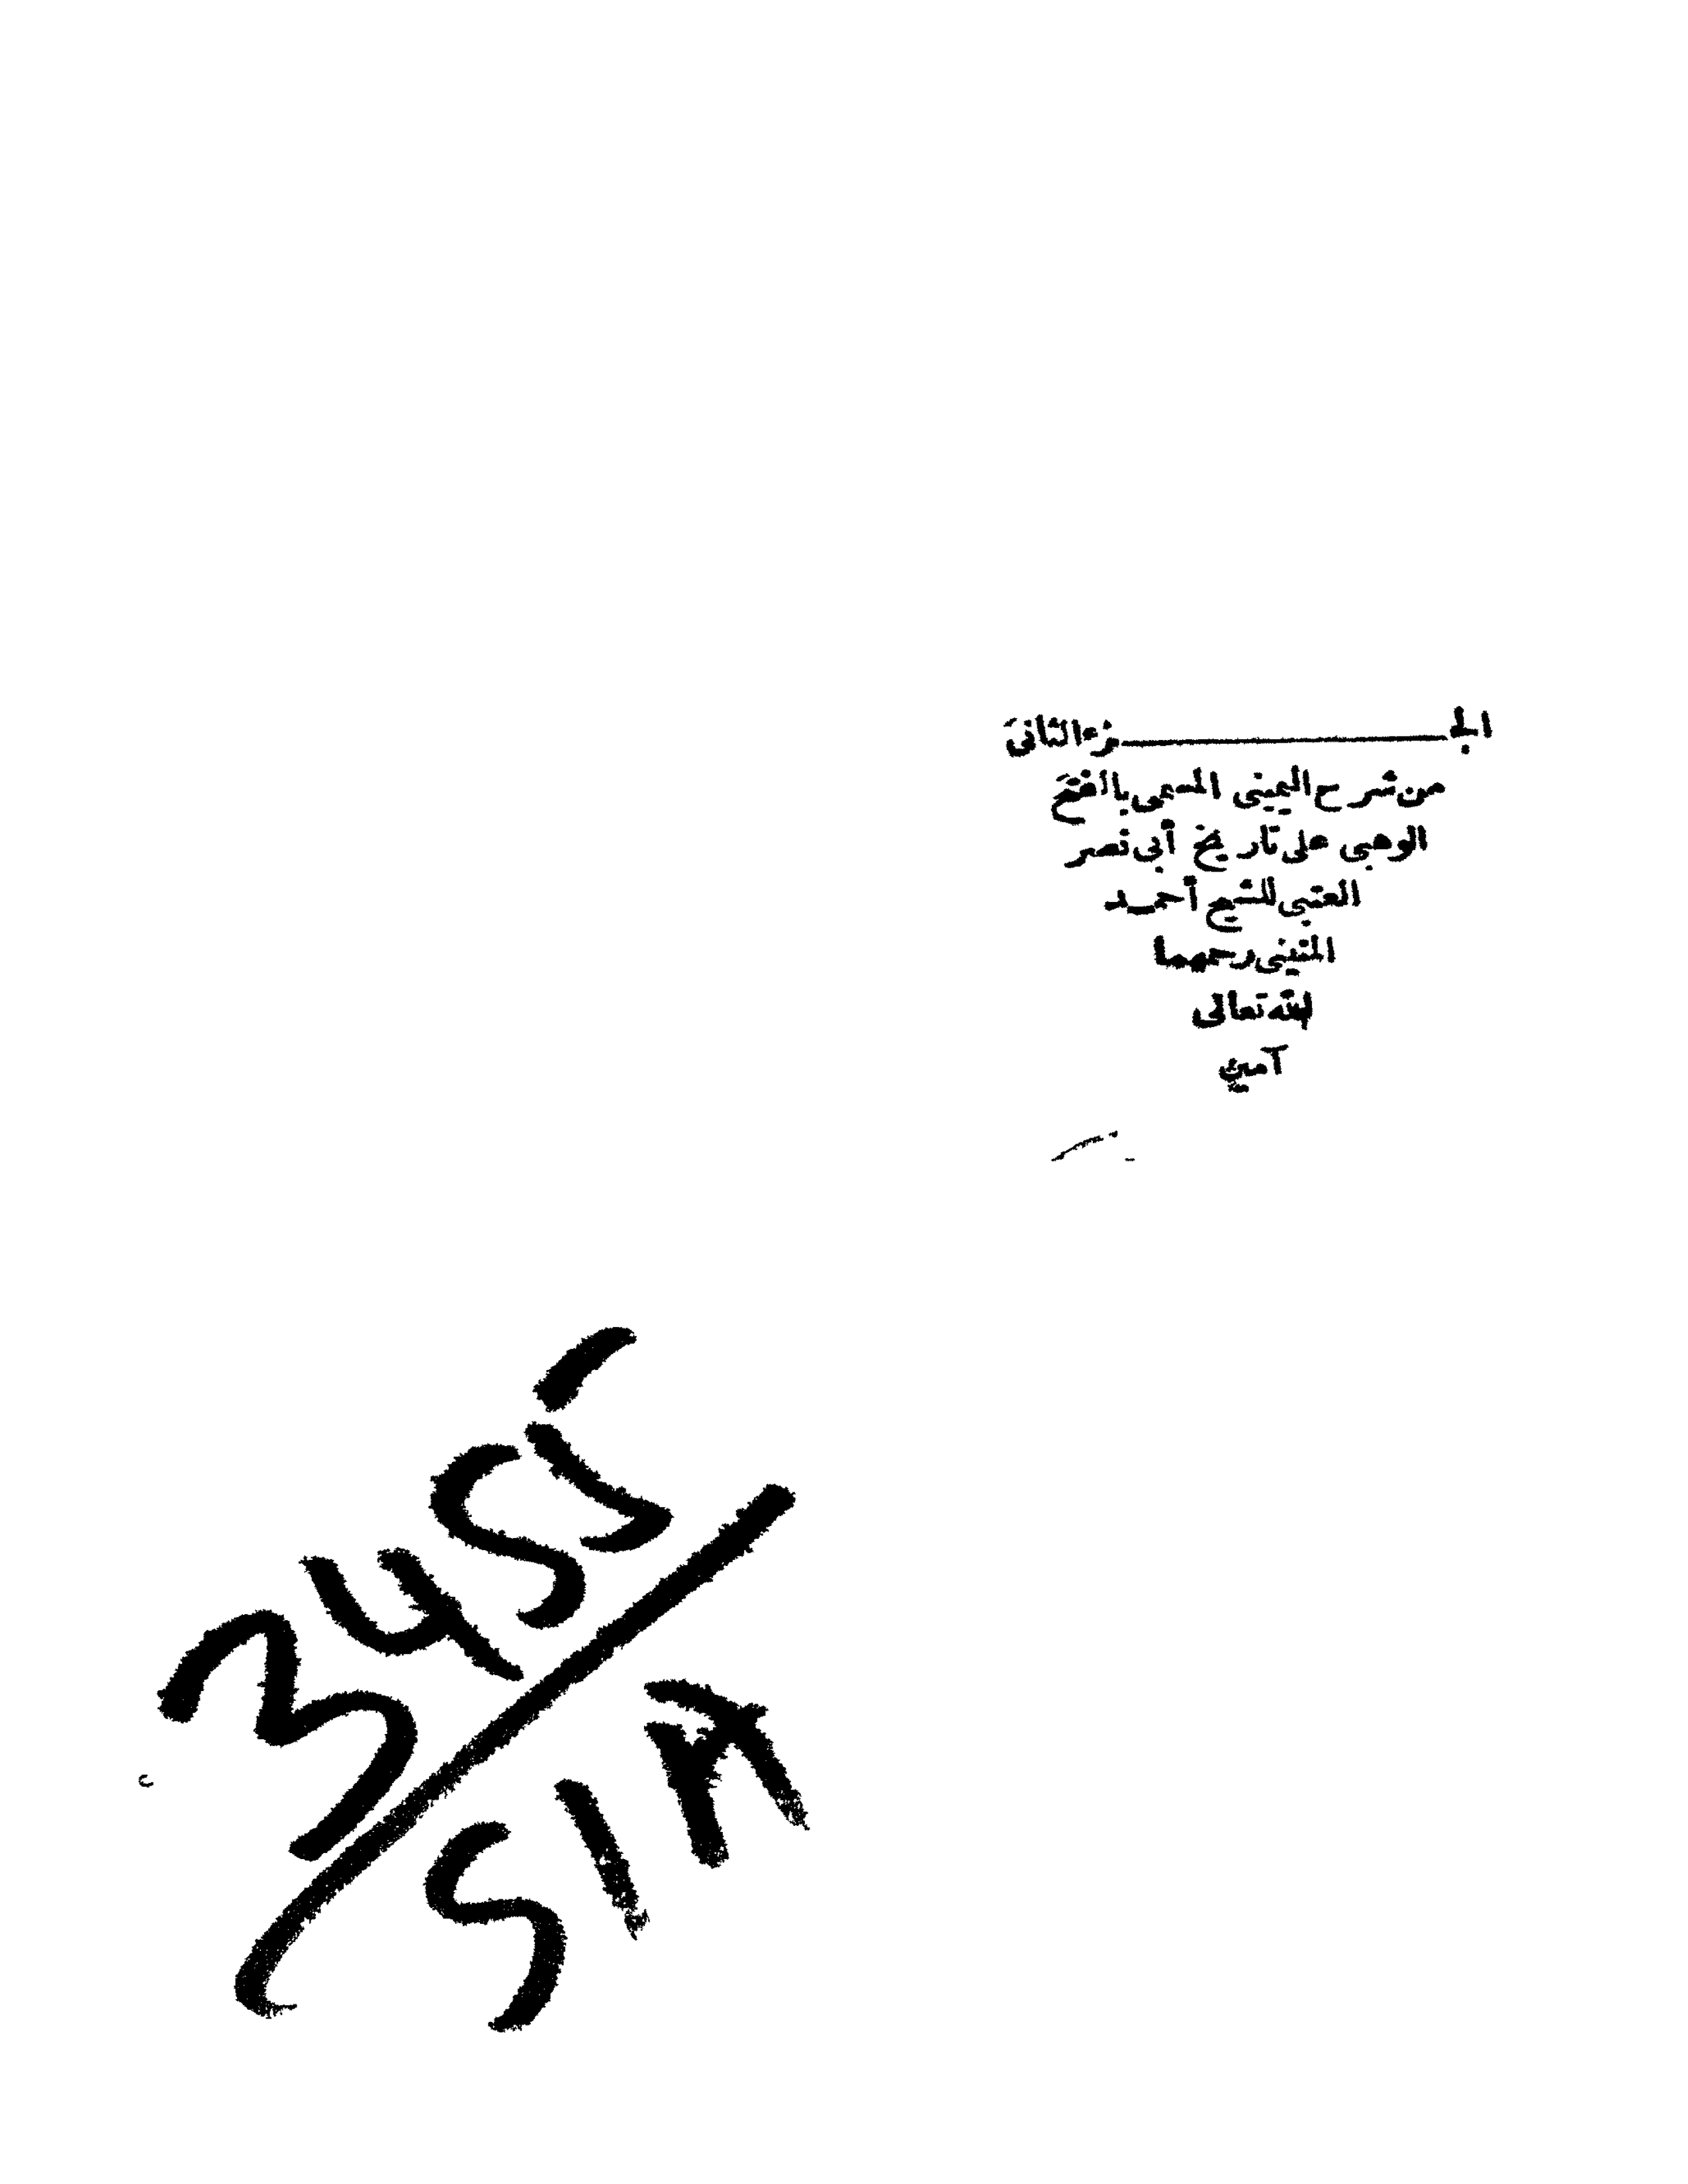 الجـــــــــزء الثانى
من شرح اليمينى المسمى بالفتح
الوهبى على تاريخ أبى نصر
العتبى للشيخ أحمـد
المنينى رحمهما
الله تعالى
آمين
3455